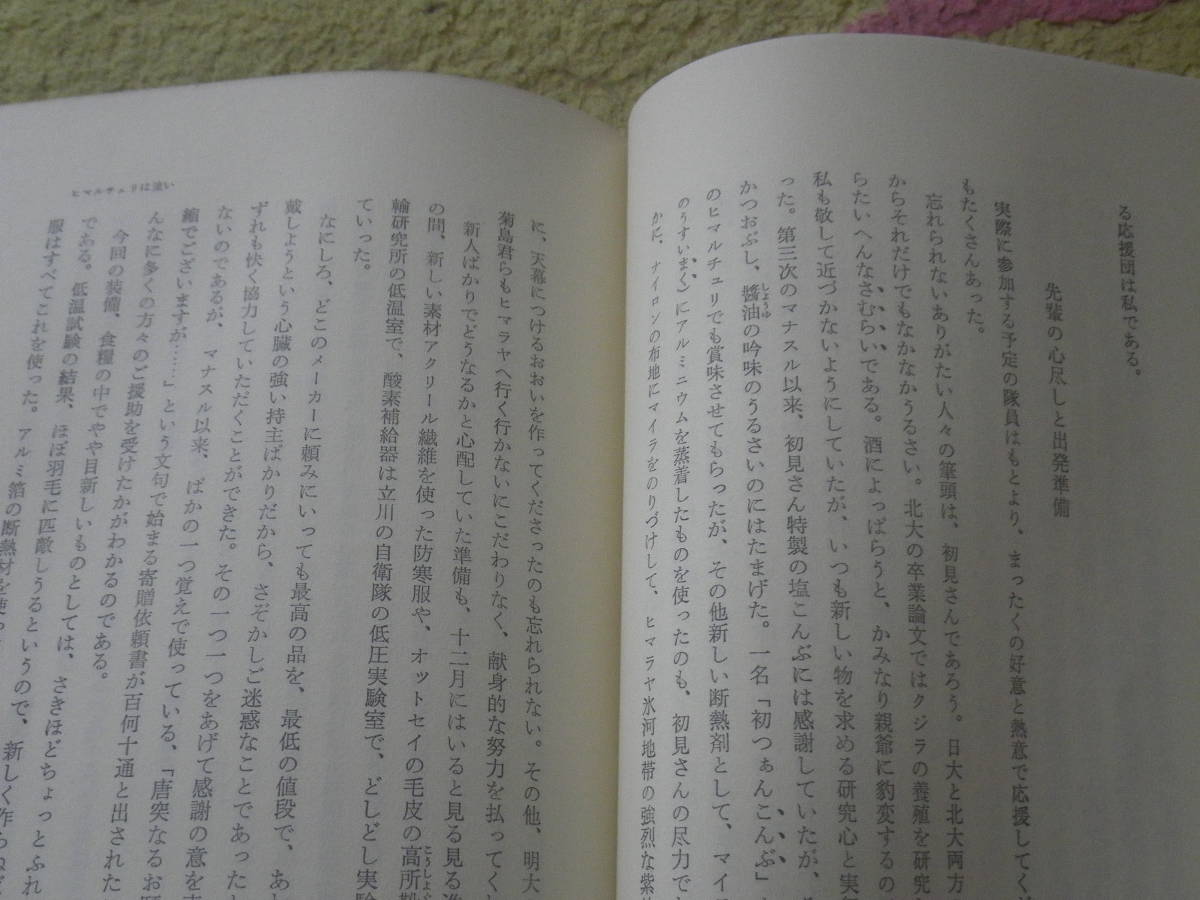 る応援団は私である。
先輩の心尽しと出発準備
実際に参加する予定の隊員はもとより、まったくの好意と熱意で応援してく
もたくさんあった。
忘れられないありがたい人々の筆頭は、初見さんであろう。日大と北大両方
からそれだけでもなかなかうるさい。北大の卒業論文ではクジラの養殖を研究
らたいへんなさむらいである。酒によっぱらうと、かみなり親爺に豹変するの
私も敬して近づかないようにしていたが、いつも新しい物を求める研究心と実
った。第三次のマナスル以来、初見さん特製の塩こんぶには感謝していたが、
かつおぶし、醬油の吟味のうるさいのにはたまげた。一名「初つぁんこんぶ」
のヒマルチュリでも賞味させてもらったが、その他新しい断熱剤として、マイ
のうすいまく)にアルミニウムを蒸着したものを使ったのも、初見さんの尽力で
かに、ナイロンの布地にマイラをのりづけして、ヒマラヤ氷河地帯の強烈な紫
に、天幕につけるおおいを作ってくださったのも忘れられない。その他、明大
菊島君らもヒマラヤへ行く行かないにこだわりなく、献身的な努力を払ってく
新人ばかりでどうなるかと心配していた準備も、十二月にはいると見る見る
の間、新しい素材アクリール繊維を使った防寒服や、オットセイの毛皮の高所靴
輪研究所の低温室で、酸素補給器は立川の自衛隊の低圧実験室で、どしどし実験
ていった。
なにしろ、どこのメーカーに頼みにいっても最高の品を、最低の値段で、あ
戴しようという心臓の強い持主ばかりだから、さぞかしご迷惑なことであった
ずれも快く協力していただくことができた。その一つ一つをあげて感謝の意を
ないのであるが、マナスル以来、ばかの一つ覚えで使っている、「唐突なるお
縮でございますが……」という文句で始まる寄贈依頼書が百何十通と出された
んなに多くの方々のご援助を受けたかがわかるのである。
今回の装備、食糧の中でやや目新しいものとしては、さきほどちょっとふれ
である。低温試験の結果、ほぼ羽毛に匹敵しうるというので、新しく作
服はすべてこれを使った。アルミ箔の断熱材を使
ヒマルチュリは遠い